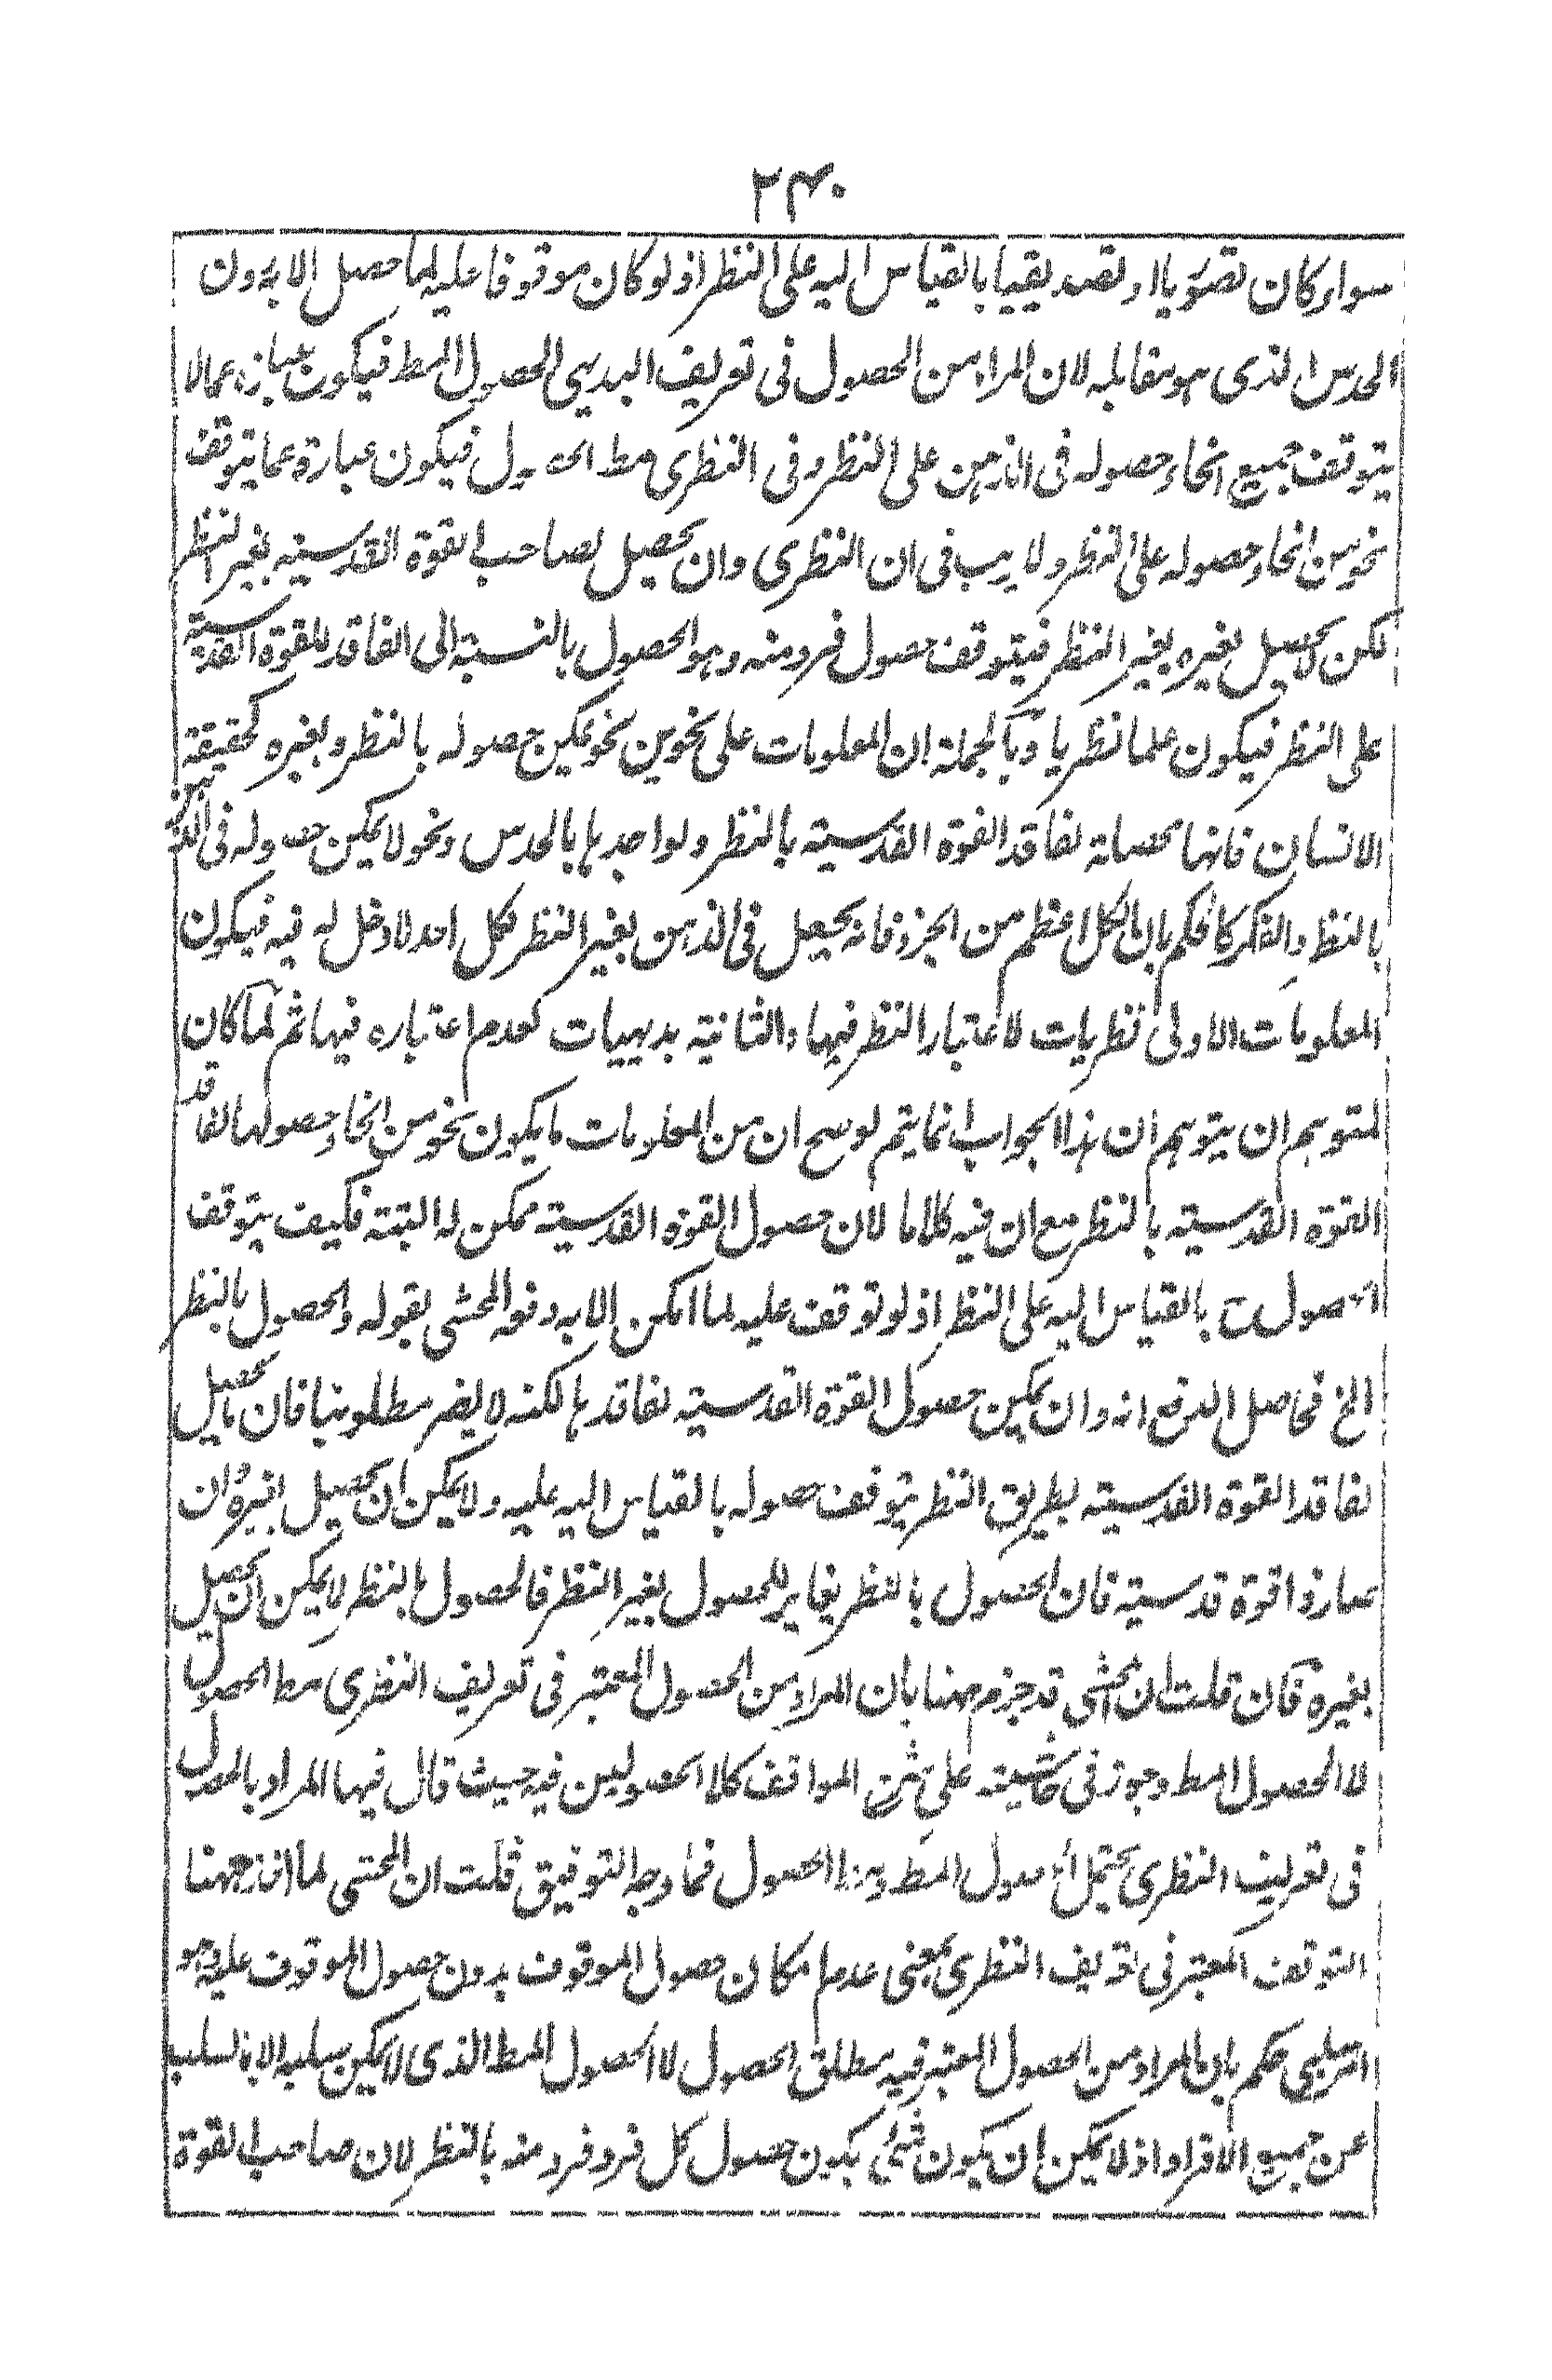 ٢٤٠
سواء كان تصوريا او تصديقيا بالقياس اليه على النظر اذ لو كان موقوفا عليه لما حصل الا به دون
الحدس الذى هو مقابله لان المراد من الحصول فى تعريف البديهى الحصول المط فيكون عبارة عما لا
يتوقف جميع انحاء حصوله فى الذهن على النظر وفى النظرى مط الحصول فيكون عبارة عما يتوقف
نحو من انحاء حصوله على النظر ولا ريب فى ان النظرى وان يحصل لصاحب القوة القدسية بغير النظر
لكن لا يحصل لغيره بغير النظر فيتوقف حصول فرد منه وهو الحصول بالنسبة الى الفاقد للقوة القدسية
على النظر فيكون علما نظريا وبالجملة ان المعلومات على نحوين نحو يمكن حصوله بالنظر وبغيره كحقيقة
الانسان فانها تحصل لفاقد القوة القدسية بالنظر ولواجدها بالحدس ونحو لا يمكن حصوله فى الذهن
بالنظر والفكر كالحكم بان الكل اعظم من الجزء فانه يحصل فى الذهن بغير النظر لكل احد لا دخل له فيه فيكون
المعلومات الاولى نظريات لاعتبار النظر فيها والثانية بديهيات لعدم اعتباره فيها ثم لما كان
لمتوهم ان يتوهم ان هذا الجواب انما يتم لو صح ان من المعلومات ما يكون نحو من انحاء حصولها لفاقد
القوة القدسية بالنظر مع ان فيه كلاما لان حصول القوة القدسية ممكن له البتة فكيف يتوقف
الحصول بالقياس اليه على النظر اذ لو توقف عليه لما امكن الا به دفعه المحشى بقوله والحصول بالنظر
الخ فحاصل الدفع انه وان يمكن حصول القوة القدسية لفاقدها لكنه لا يضر مطلوبنا فان ما يحصل
لفاقد القوة القدسية بطريق النظر يتوقف حصوله بالقياس اليه عليه ولا يمكن ان يحصل بغيره وان
صار ذا قوة قدسية فان الحصول بالنظر يغاير للحصول بغير النظر فالحصول بالنظر لا يمكن ان يحصل
بغيره فان قلت ان المحشى قد جزم ههنا بان المراد من الحصول المعتبر فى تعريف النظرى مط الحصول
لا الحصول المط وجوز فى حاشيته على شرح المواقف كلا الحصولين فيه حيث قال فيها المراد بالحصول
فى تعريف النظرى يحتمل الحصول المط ومط الحصول فما وجه التوفيق قلت ان المحشى لما اخذ ههنا
التوقف المعتبر فى تعريف النظرى بمعنى عدم امكان حصول الموقوف بدون حصول الموقوف عليه وهو
امر سلبى حكم بان المراد من الحصول المعتبر فيه مطلق الحصول لا الحصول المط الذى لا يمكن سلبه الا بالسلب
عن جميع الافراد اذ لا يمكن ان يكون شئ يكون حصول كل فرد فرد منه بالنظر لان صاحب القوة